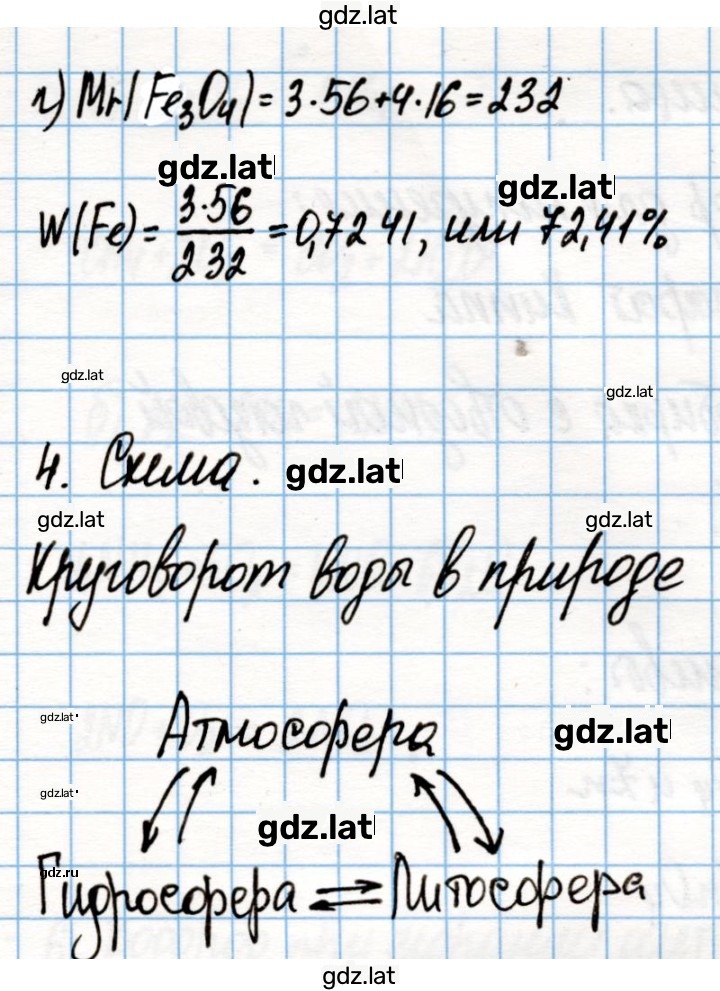 gdz.lat
г) Mr(Fe₃O₄) = 3·56+4·16=232
gdz.lat
gdz.lat
W(Fe) = 3·56/232 = 0,7241, или 72,41%
gdz.lat
gdz.lat
4. Схема.
gdz.lat
gdz.lat
gdz.lat
Круговорот воды в природе
gdz.lat
Атмосфера
gdz.lat
gdz.lat
gdz.lat
gdz.ru
Гидросфера ⇌ Литосфера
gdz.lat